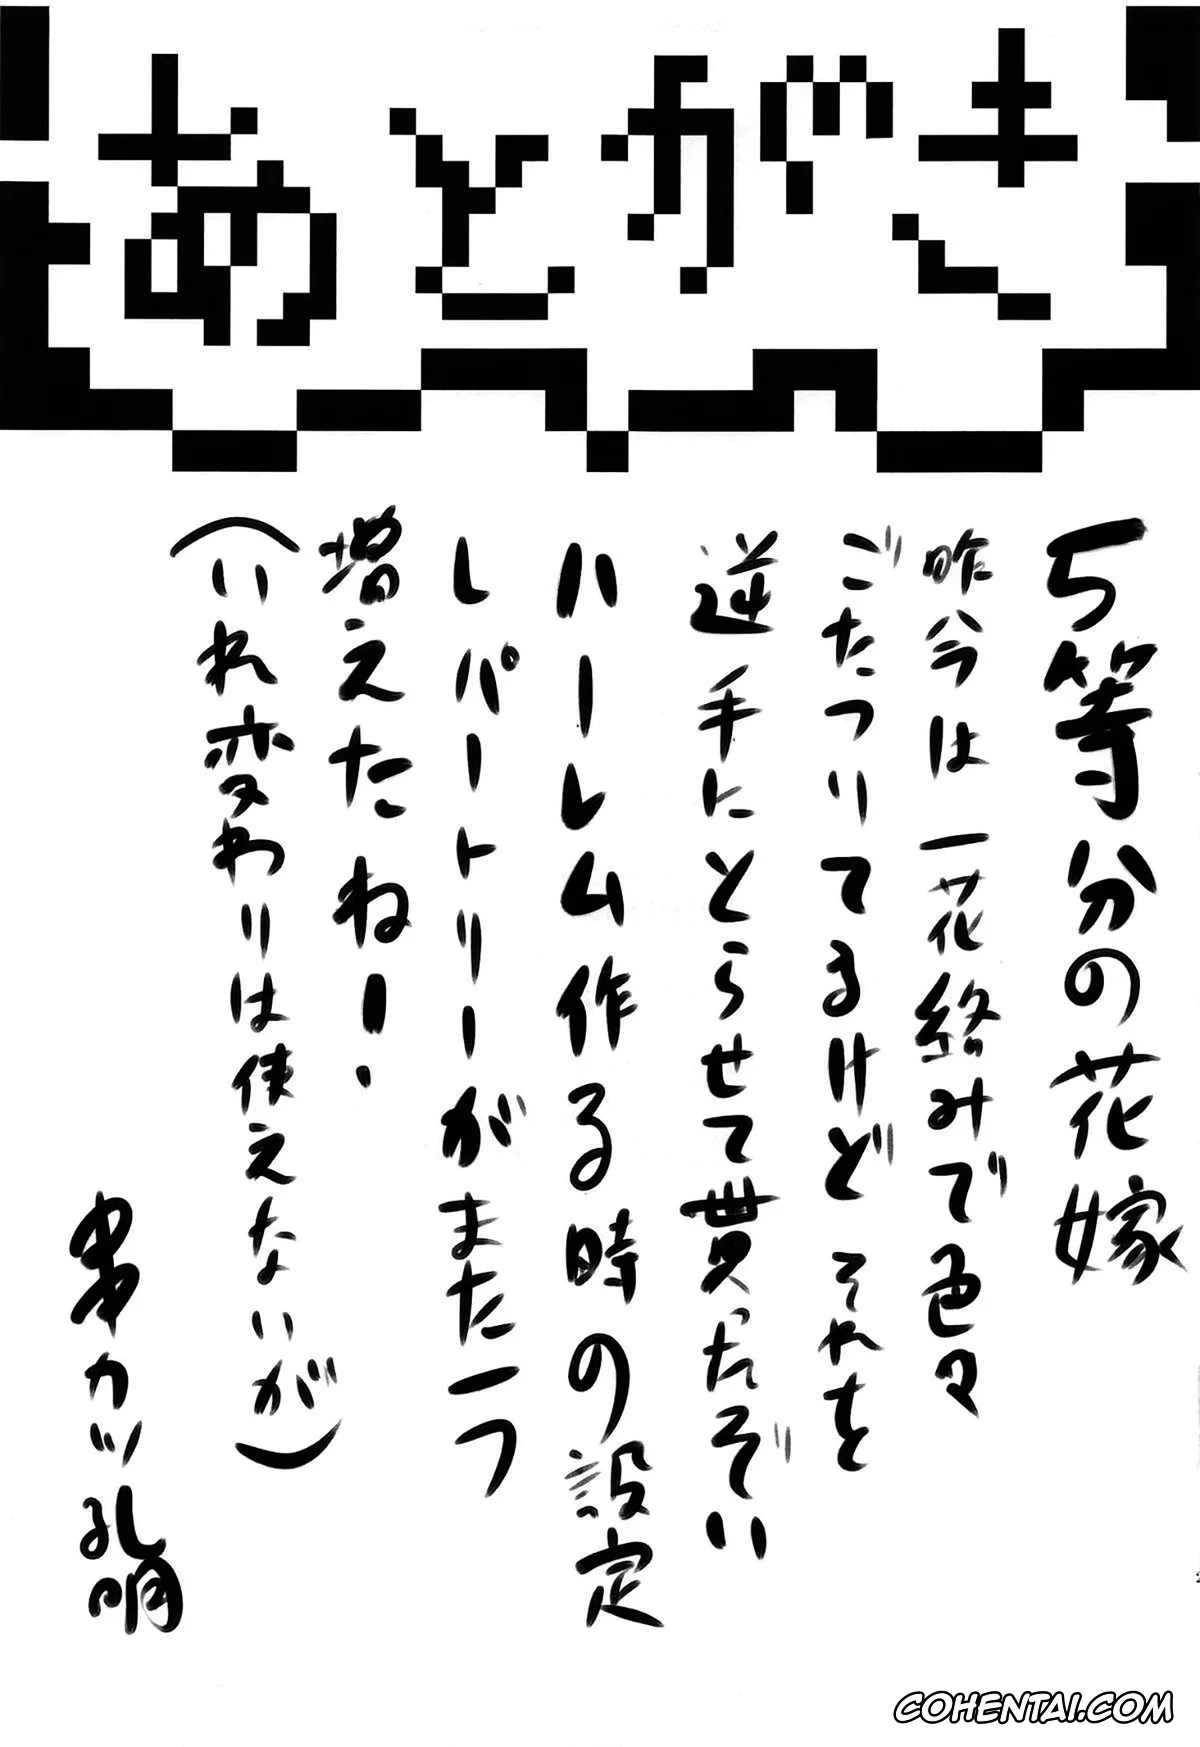 あとがき
5等分の花嫁
昨今は一花絡みで色々
ごたつりてるけどそれを
逆手にとらせて貰ったぞい
ハーレム作る時の設定
レパートリーがまた一つ
増えたね!
(いれ変わりは使えないが)
串カツ孔明
COHENTAI.COM